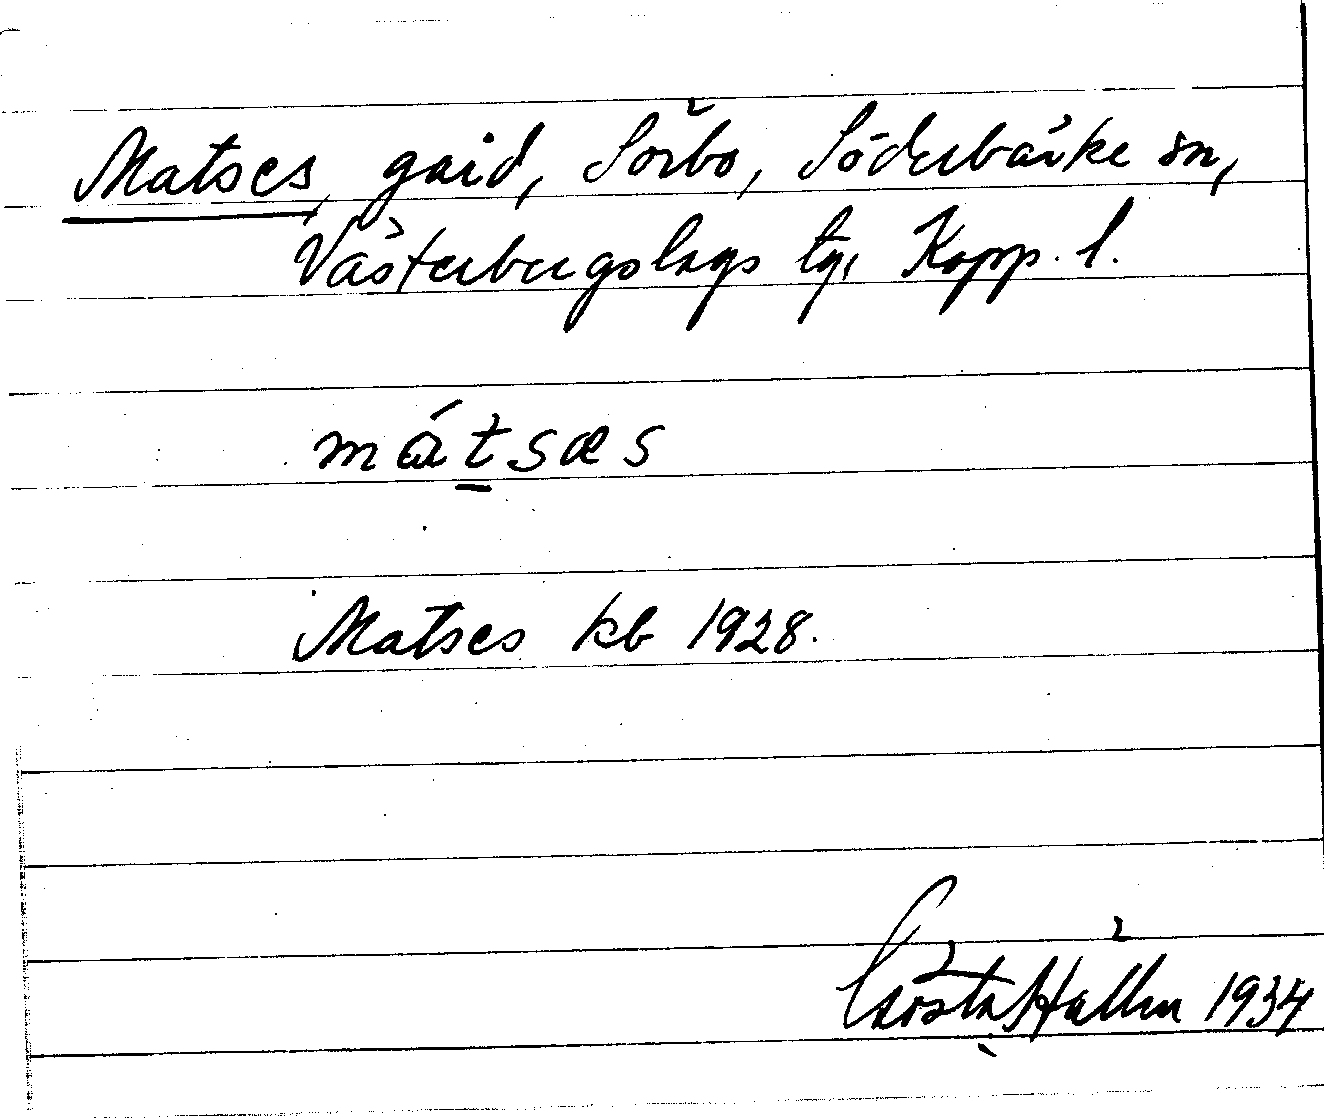 Matses, gård, Sörbo, Söderbärke sn,
Västerbergslags tg, Kopp. l.
mátsæs
Matses kb 1928.
Gösta Hallén 1934